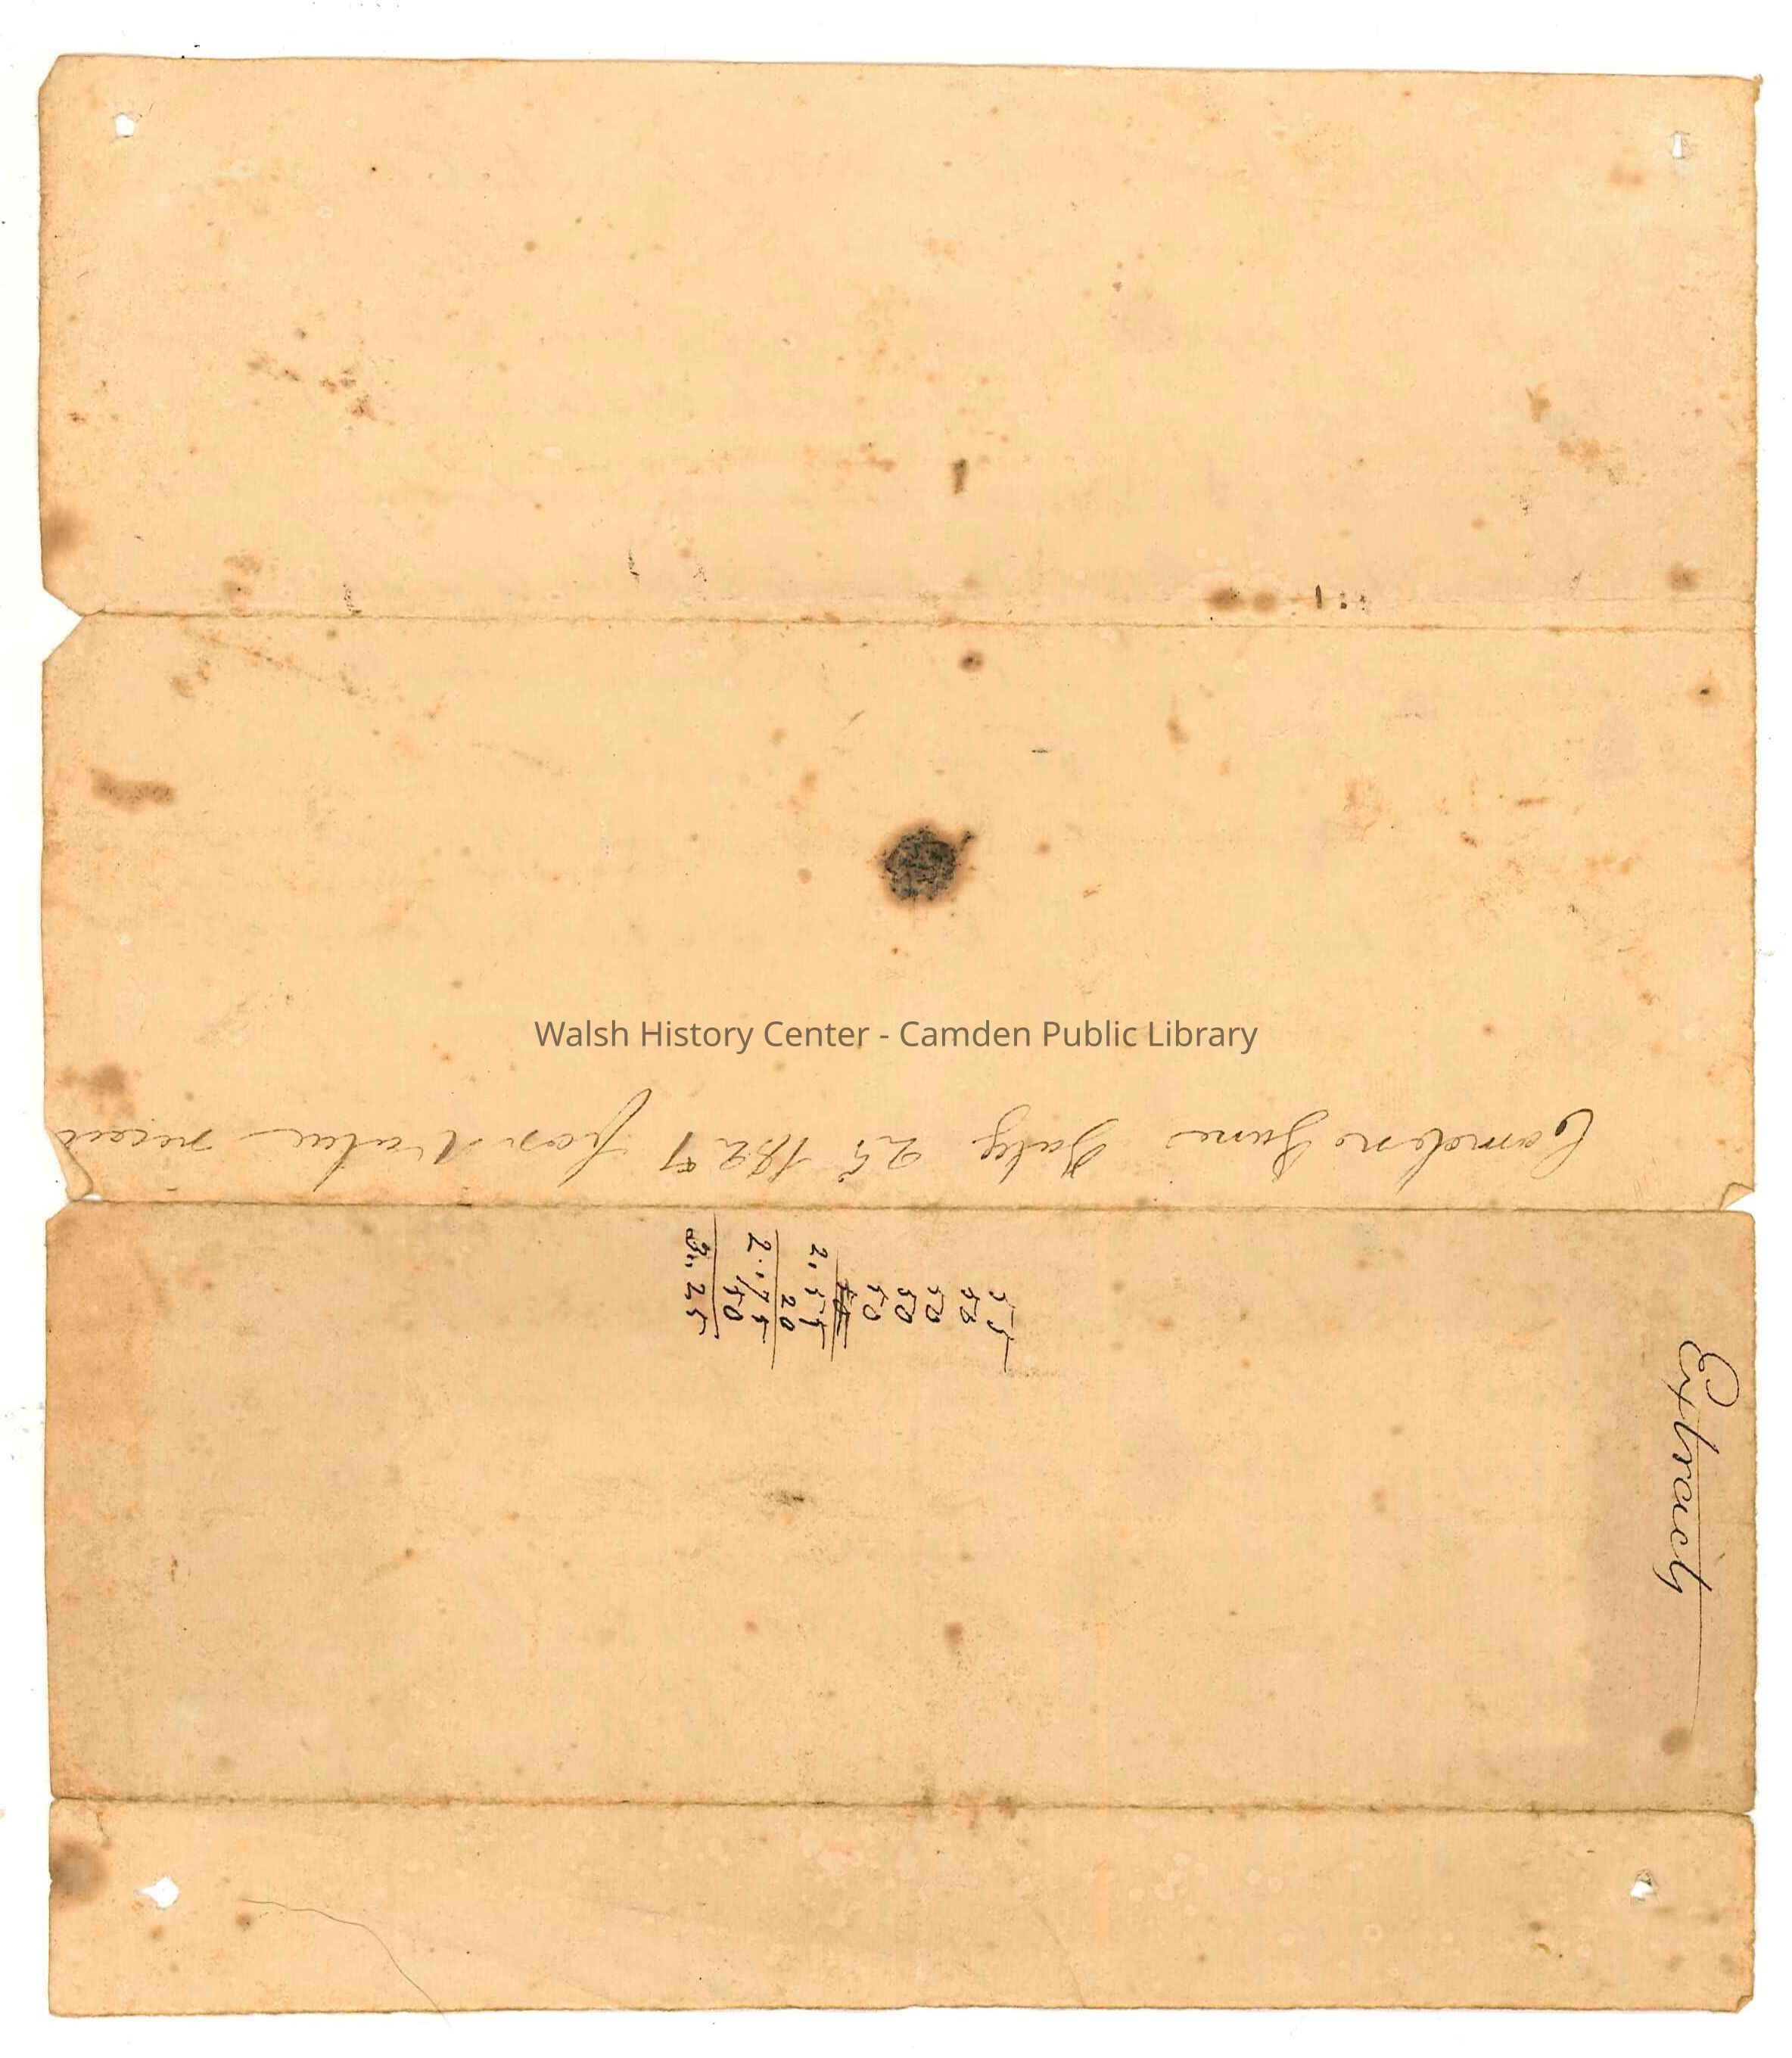 Walsh History Center - Camden Public Library
Camden June July 25 for value
55
50
50
50
50
2.55
20
2.75
50
3.25
Extracts